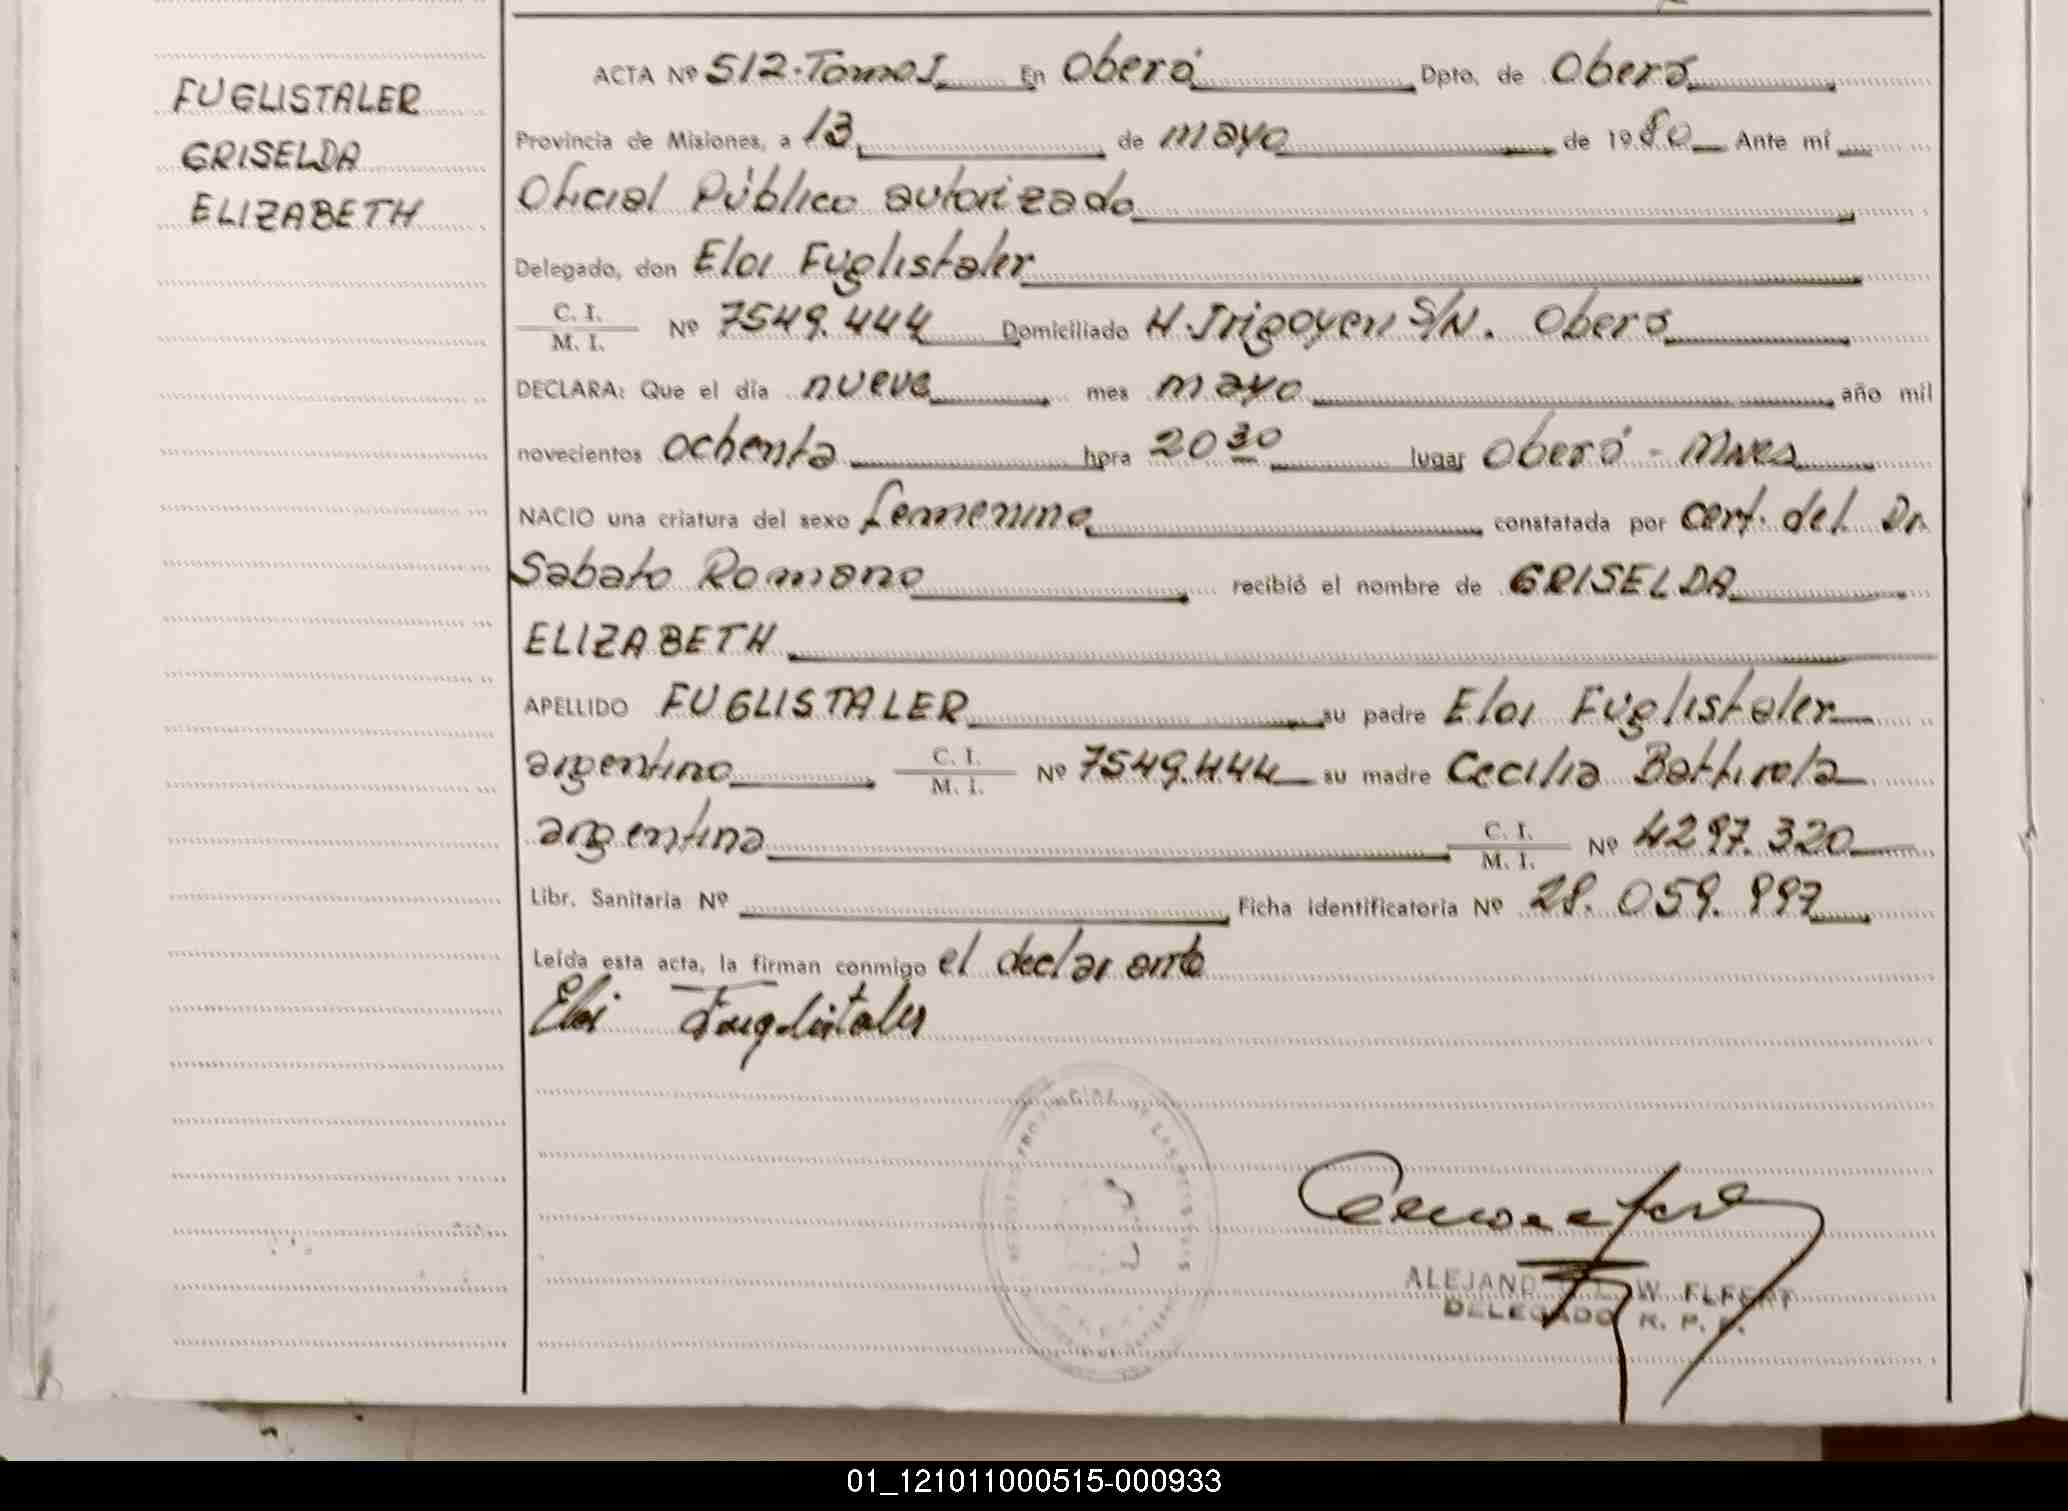 FUGLISTALER
GRISELDA
ELIZABETH
ACTA Nº 512-Tomo I En Oberá Dpto. de Oberá
Provincia de Misiones, a 13 de mayo de 1980 Ante mí
Oficial Público autorizado
Delegado, don Eloi Fuglistaler
C. I. / M. I. Nº 7549.444 Domiciliado H. Irigoyen S/N. Oberá
DECLARA: Que el día nueve mes mayo año mil
novecientos ochenta hora 20 30 lugar Oberá - Mnes
NACIO una criatura del sexo femenino constatada por cert. del Dr.
Sabato Romano recibió el nombre de GRISELDA
ELIZABETH
APELLIDO FUGLISTALER su padre Eloi Fuglistaler
argentino C. I. / M. I. Nº 7549.444 su madre Cecilia
argentina C. I. / M. I. Nº 4297.320
Libr. Sanitaria Nº Ficha identificatoria Nº 28.059.997
Leída esta acta, la firman conmigo el declarante
Eloi Fuglistaler
DELEGADO R. P.
01_121011000515-000933